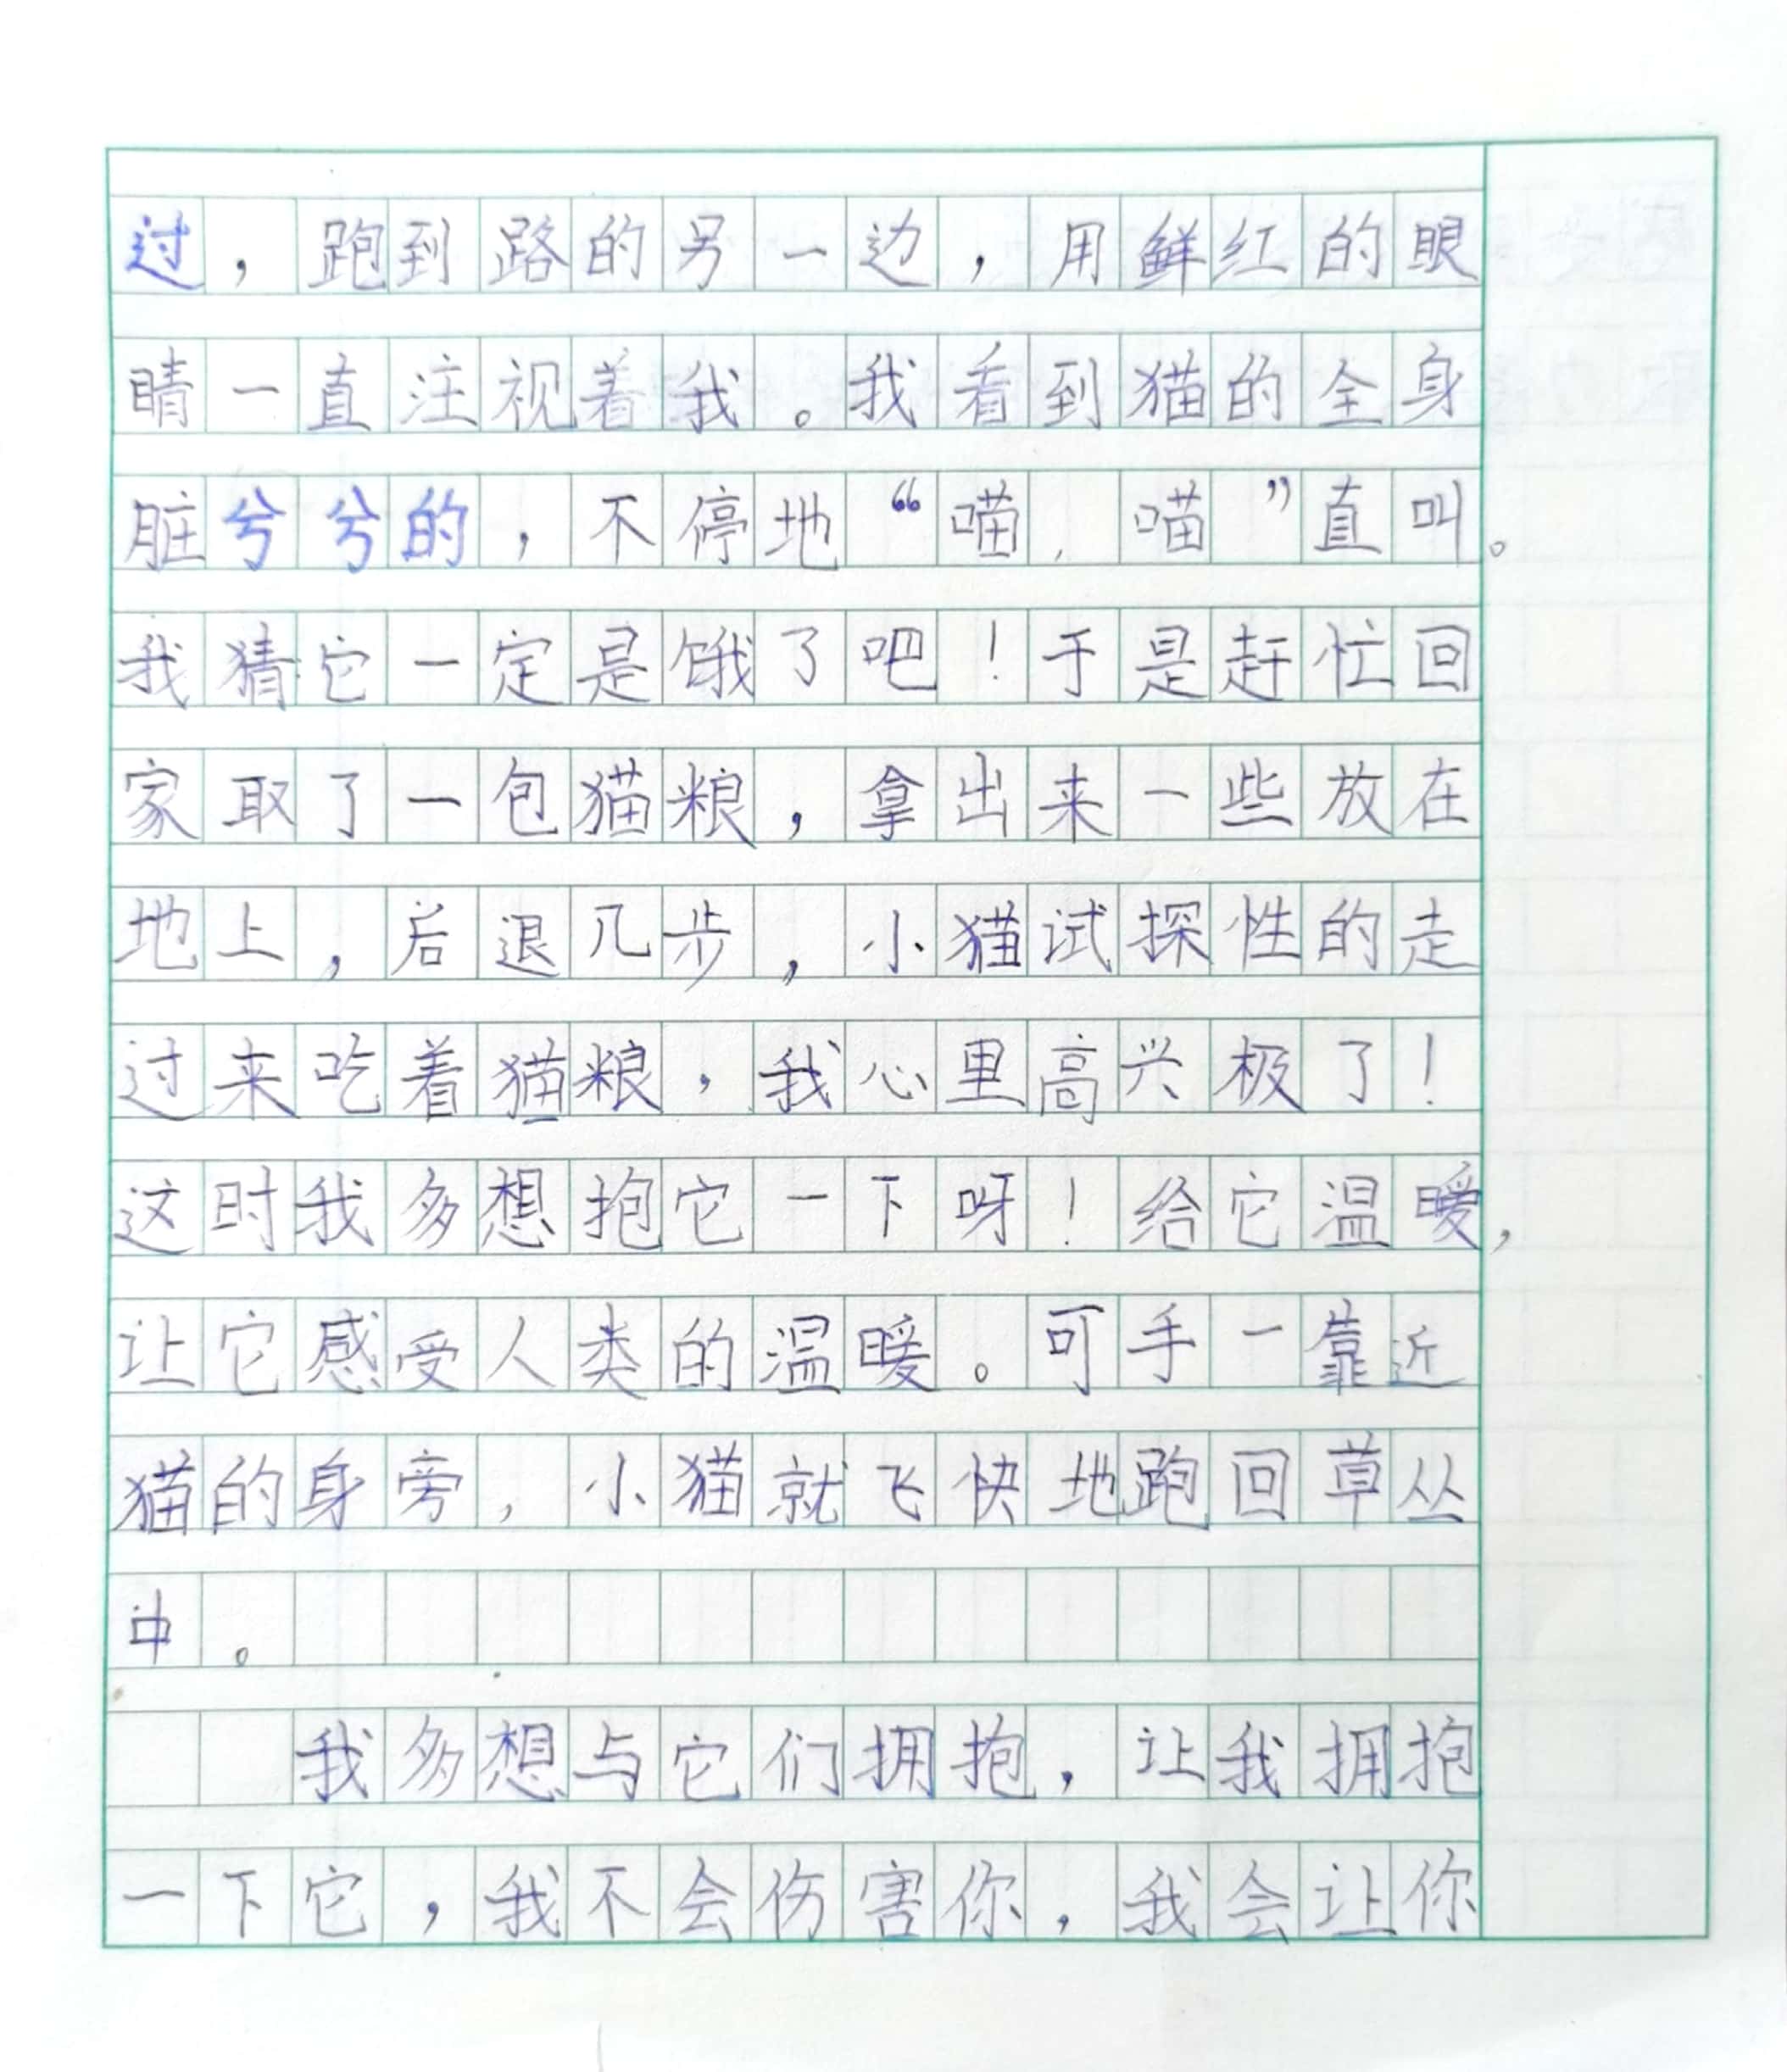 过，跑到路的另一边，用鲜红的眼
睛一直注视着我。我看到猫的全身
脏兮兮的，不停地“喵，喵”直叫。
我猜它一定是饿了吧！于是赶忙回
家取了一包猫粮，拿出来一些放在
地上，后退几步，小猫试探性的走
过来吃着猫粮，我心里高兴极了！
这时我多想抱它一下呀！给它温暖，
让它感受人类的温暖。可手一靠近
猫的身旁，小猫就飞快地跑回草丛
中。
我多想与它们拥抱，让我拥抱
一下它，我不会伤害你，我会让你